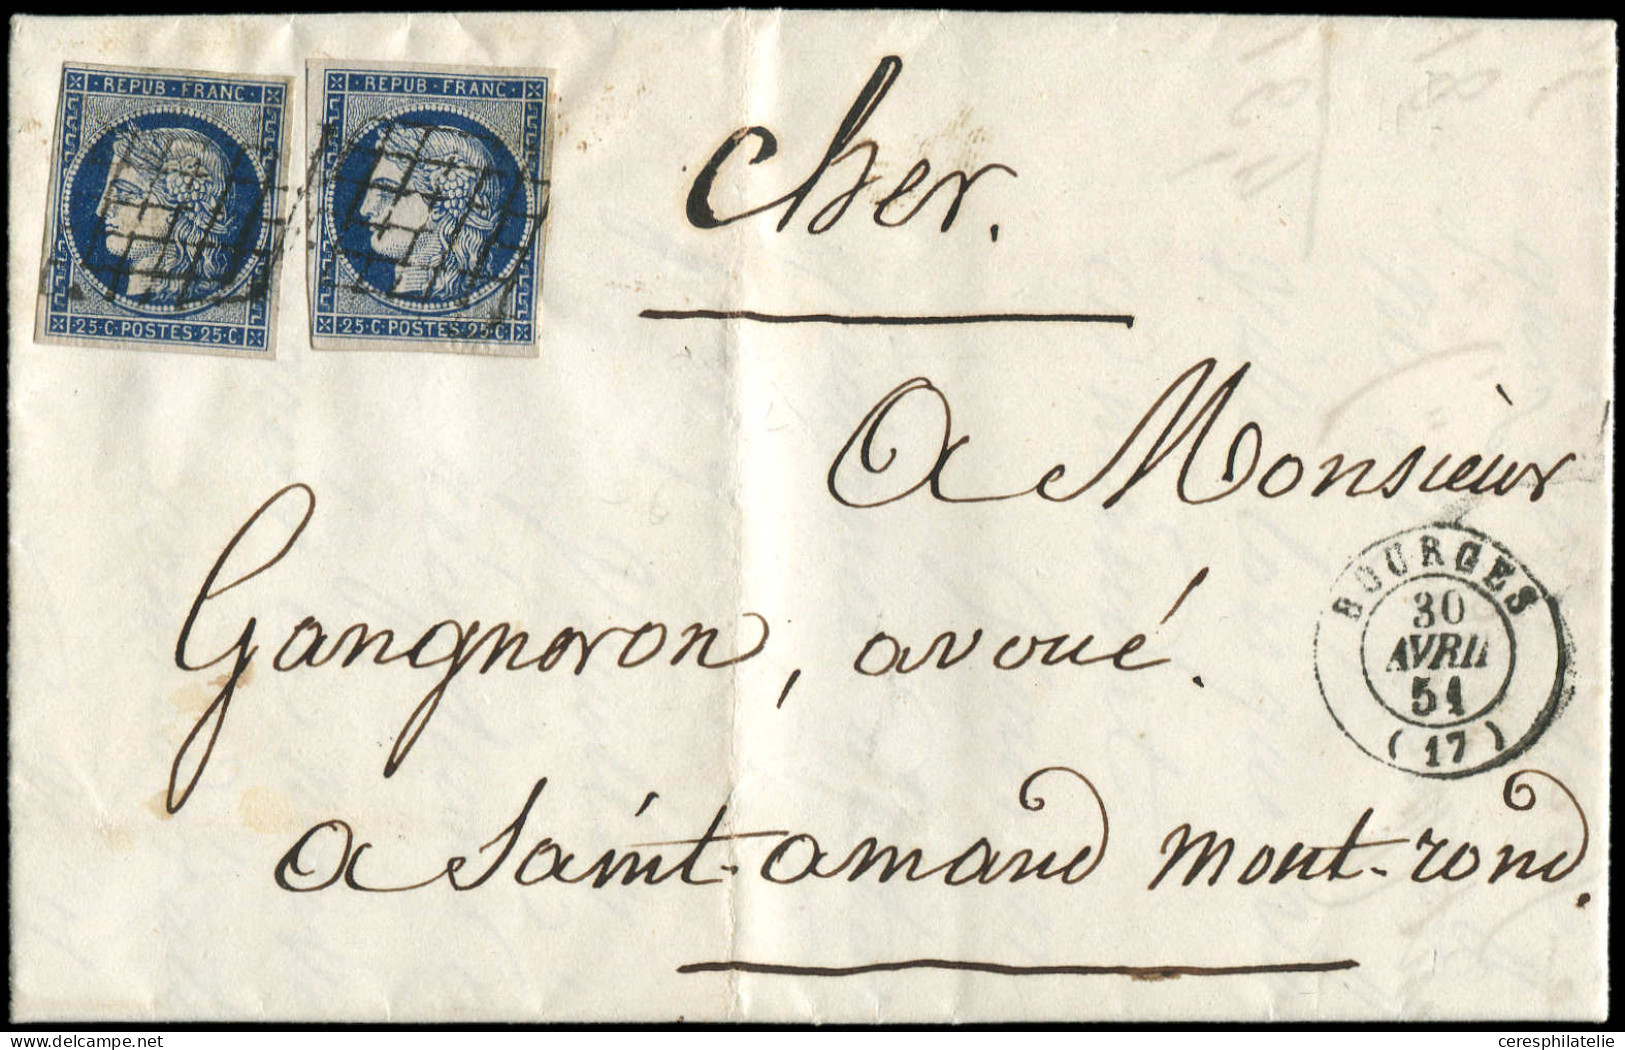 REPUB·FRANC·
25·C·POSTES·25·C
REPUB·FRANC·
25·C·POSTES·25·C
Cher.
A Monsieur
Gangneron, avoué.
a Saint-amand mont-rond.
BOURGES
30
AVRIL
51
(17)
ceresphilatelie